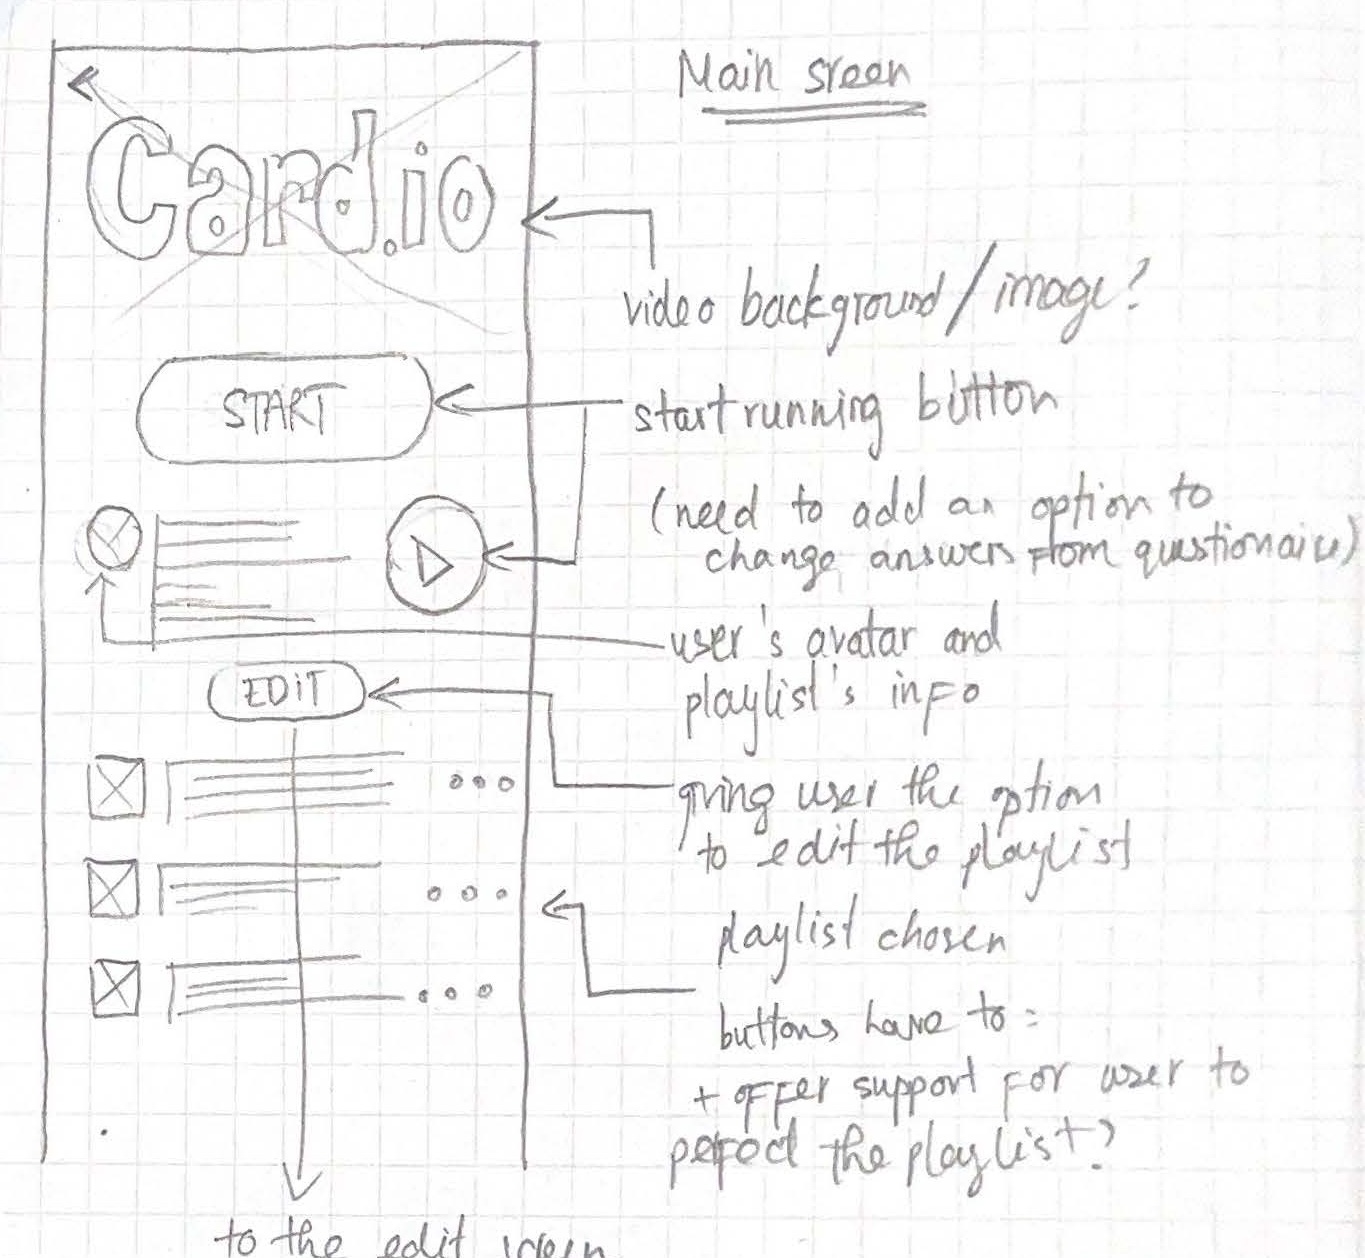 Main sreen
Card.io
video background/image?
START
start running button
(need to add an option to
change answers from questionaire)
user's avatar and
playlist's info
EDIT
giving user the option
to edit the playlist
playlist chosen
buttons have to:
+ offer support for user to
the playlist?
to the edit screen